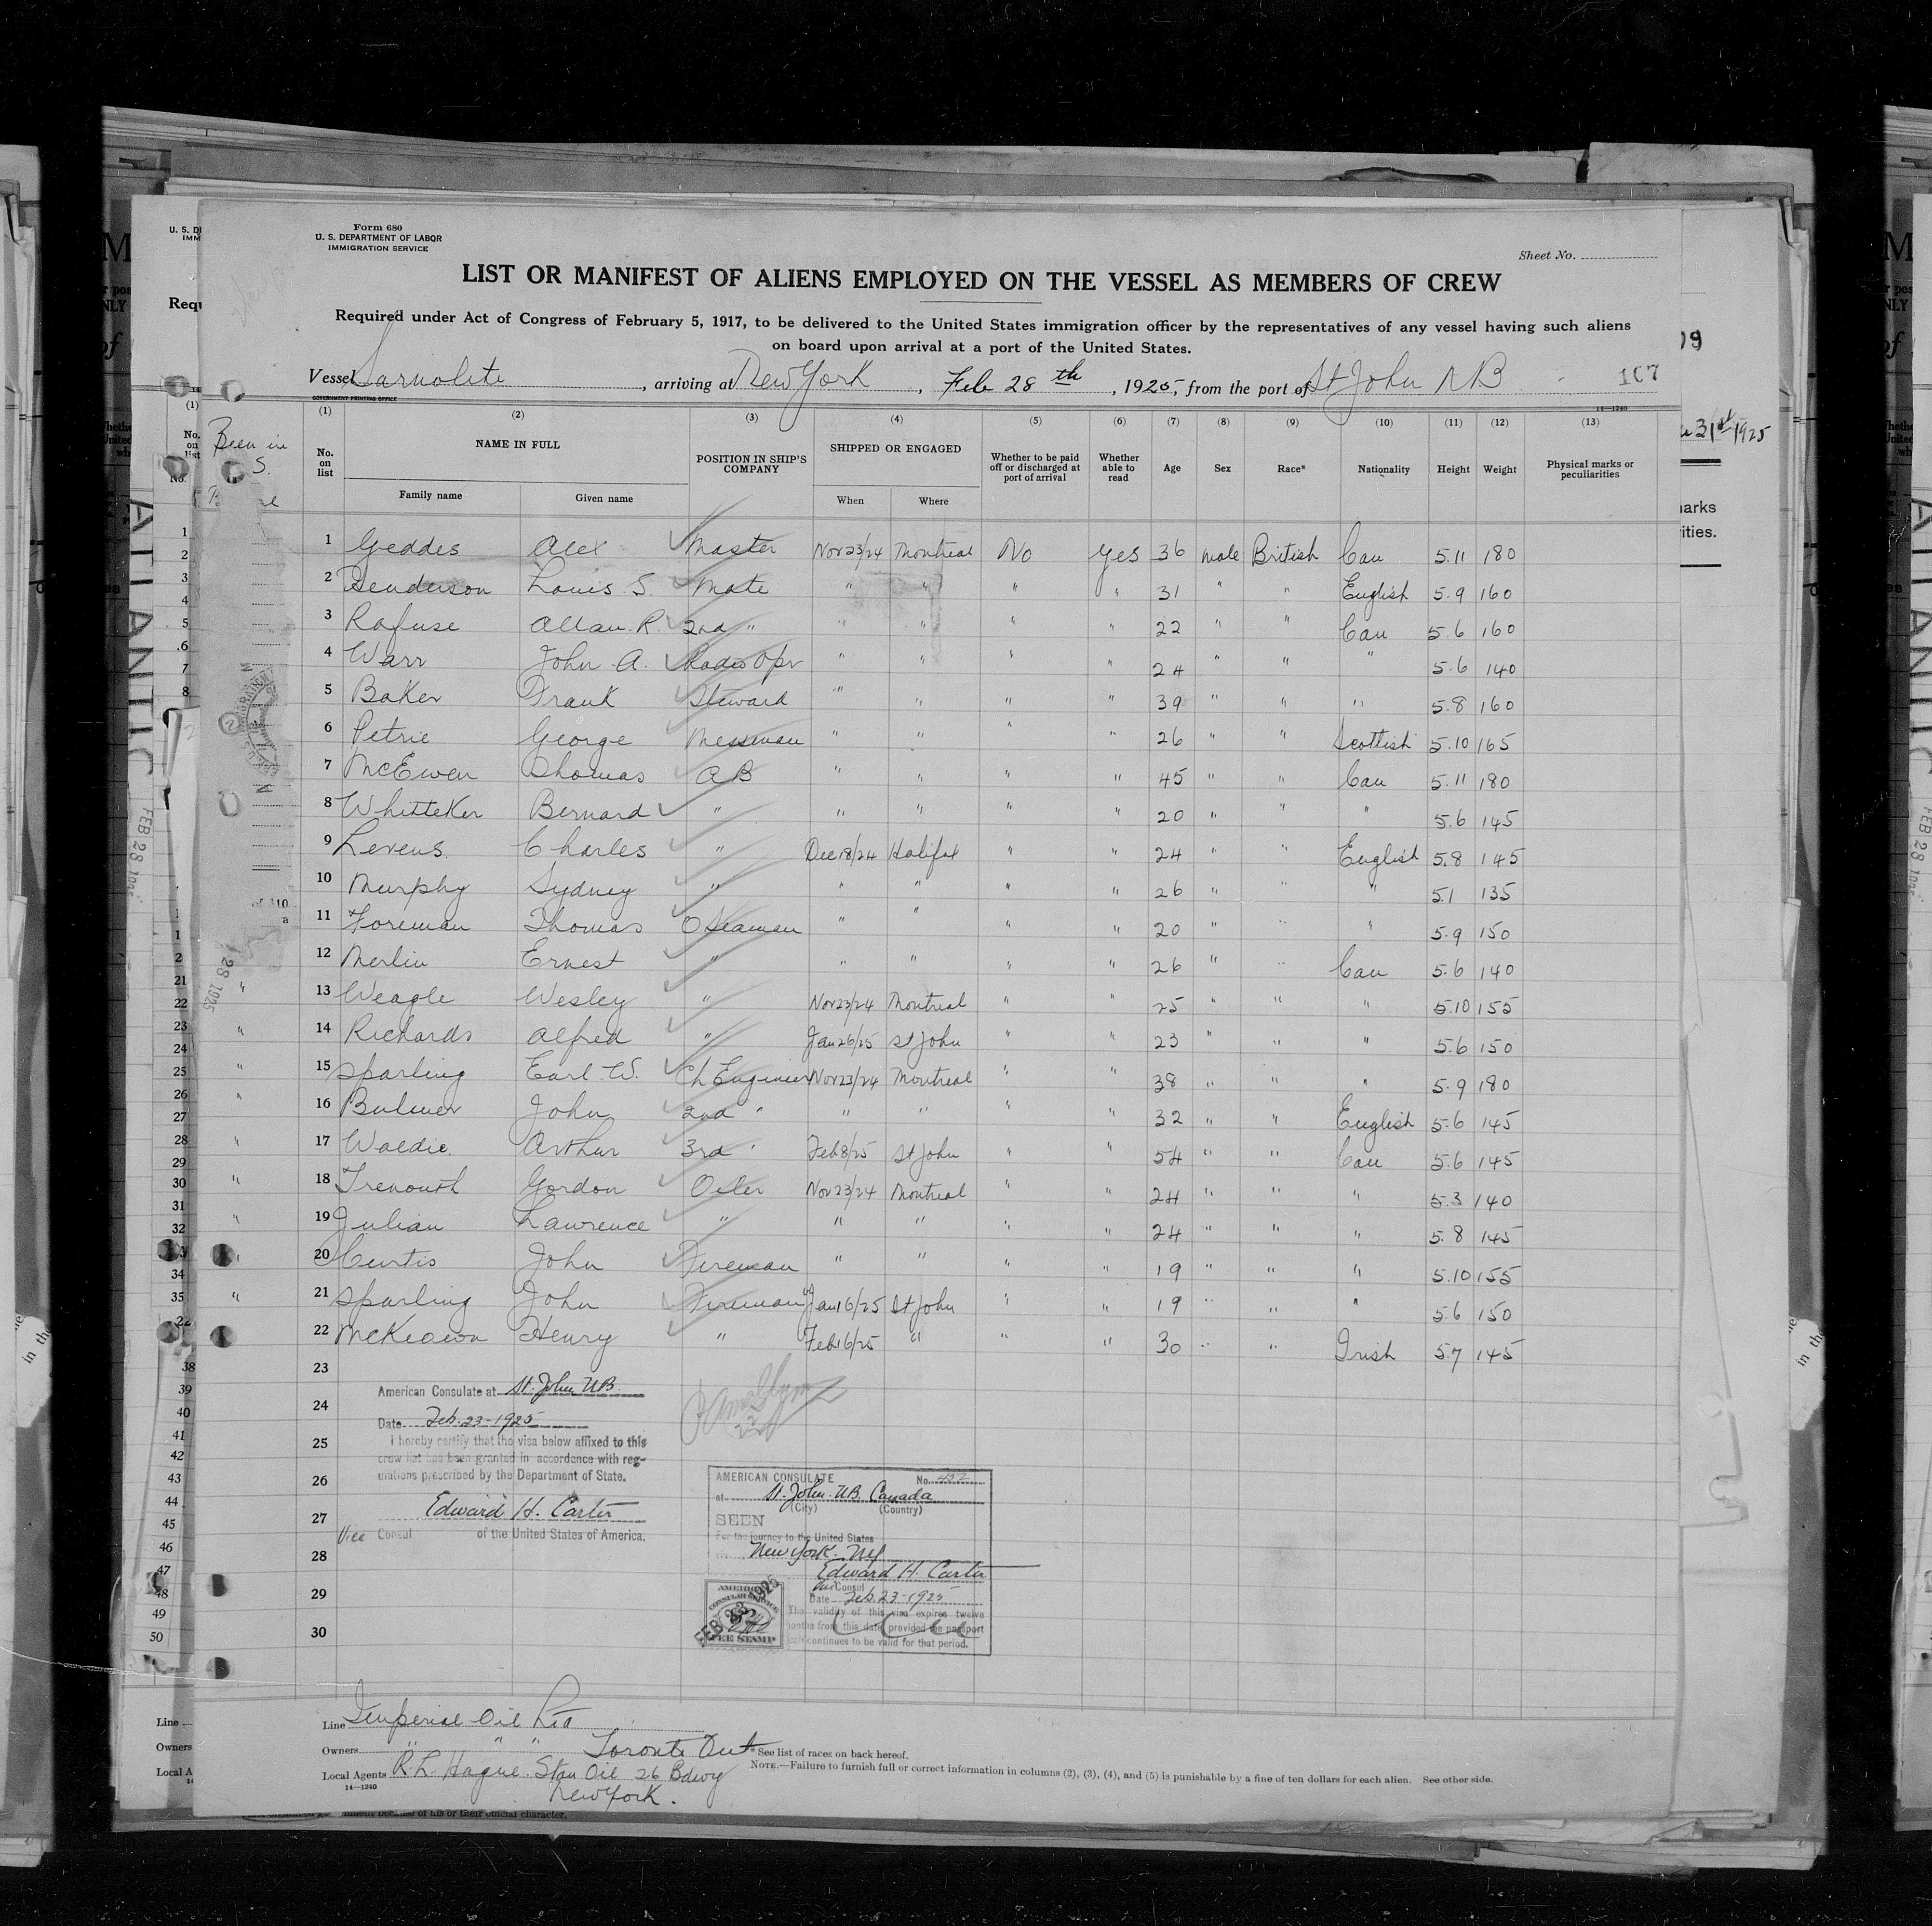 Form 680
U. S. DEPARTMENT OF LABOR
IMMIGRATION SERVICE
Sheet No.
LIST OR MANIFEST OF ALIENS EMPLOYED ON THE VESSEL AS MEMBERS OF CREW
Required under Act of Congress of February 5, 1917, to be delivered to the United States immigration officer by the representatives of any vessel having such aliens
on board upon arrival at a port of the United States.
Vessel Sarnolite, arriving at New York, Feb 28th, 1925, from the port of St John N B 107
GOVERNMENT PRINTING OFFICE
14—1240
Been in
S.
(1) (2) (3) (4) (5) (6) (7) (8) (9) (10) (11) (12) (13)
No. on list NAME IN FULL POSITION IN SHIP'S COMPANY SHIPPED OR ENGAGED Whether to be paid off or discharged at port of arrival Whether able to read Age Sex Race* Nationality Height Weight Physical marks or peculiarities
Family name Given name When Where
1 Geddes Alex Master Nov 23/24 Montreal No Yes 36 male British Can 5.11 180
2 Henderson Louis S. Mate " " " " 31 " " English 5.9 160
3 Rafuse Allan R. 2nd " " " " " 22 " " Can 5.6 160
4 Warr John A. Radio Opr " " " " 24 " " " 5.6 140
5 Baker Frank Steward " " " " 39 " " " 5.8 160
6 Petrie George Messman " " " " 26 " " Scottish 5.10 165
7 McEwen Thomas A B " " " " 45 " " Can 5.11 180
8 Whitteker Bernard " " " " " 20 " " " 5.6 145
9 Levens Charles " Dec 18/24 Halifax " " 24 " " English 5.8 145
10 Murphy Sydney " " " " " 26 " " " 5.1 135
11 Foreman Thomas O Seaman " " " " 20 " " " 5.9 150
12 Merlin Ernest " " " " " 26 " " Can 5.6 140
13 Weagle Wesley " Nov 23/24 Montreal " " 25 " " " 5.10 155
14 Richards Alfred " Jan 26/25 St John " " 23 " " " 5.6 150
15 Sparling Earl W. Ch Engineer Nov 23/24 Montreal " " 38 " " " 5.9 180
16 Bulmer John 2nd " " " " " 32 " " English 5.6 145
17 Waedie Arthur 3rd " Feb 8/25 St John " " 54 " " Can 5.6 145
18 Trenouth Gordon Oiler Nov 23/24 Montreal " " 24 " " " 5.3 140
19 Julian Lawrence " " " " " 24 " " " 5.8 145
20 Curtis John Fireman " " " " 19 " " " 5.10 155
21 Sparling John Fireman Jan 16/25 St John " " 19 " " " 5.6 150
22 McKeown Henry " Feb 16/25 " " " 30 " " Irish 5.7 145
23
24
25
26
27
28
29
30
American Consulate at St. John N.B.
Date Feb. 23-1925
I hereby certify that the visa below affixed to this
crew list has been granted in accordance with reg-
ulations prescribed by the Department of State.
Edward H. Carter
Vice Consul of the United States of America.
AMERICAN CONSULATE No. 452
at St. John. N.B. Canada
(City) (Country)
SEEN
For the journey to the United States
New York. NY
Edward H. Carter
Vice Consul
Date Feb. 23-1925
The validity of this visa expires twelve
months from this date provided the passport
continues to be valid for that period.
AMERICAN
CONSULAR SERVICE
FEB 23 1925
FEE STAMP
Line Imperial Oil Ltd
Owners " " " Toronto Ont
Local Agents R. L. Hague. Stan Oil 26 Bdwy
New York.
14—1240
*See list of races on back hereof.
NOTE.—Failure to furnish full or correct information in columns (2), (3), (4), and (5) is punishable by a fine of ten dollars for each alien. See other side.